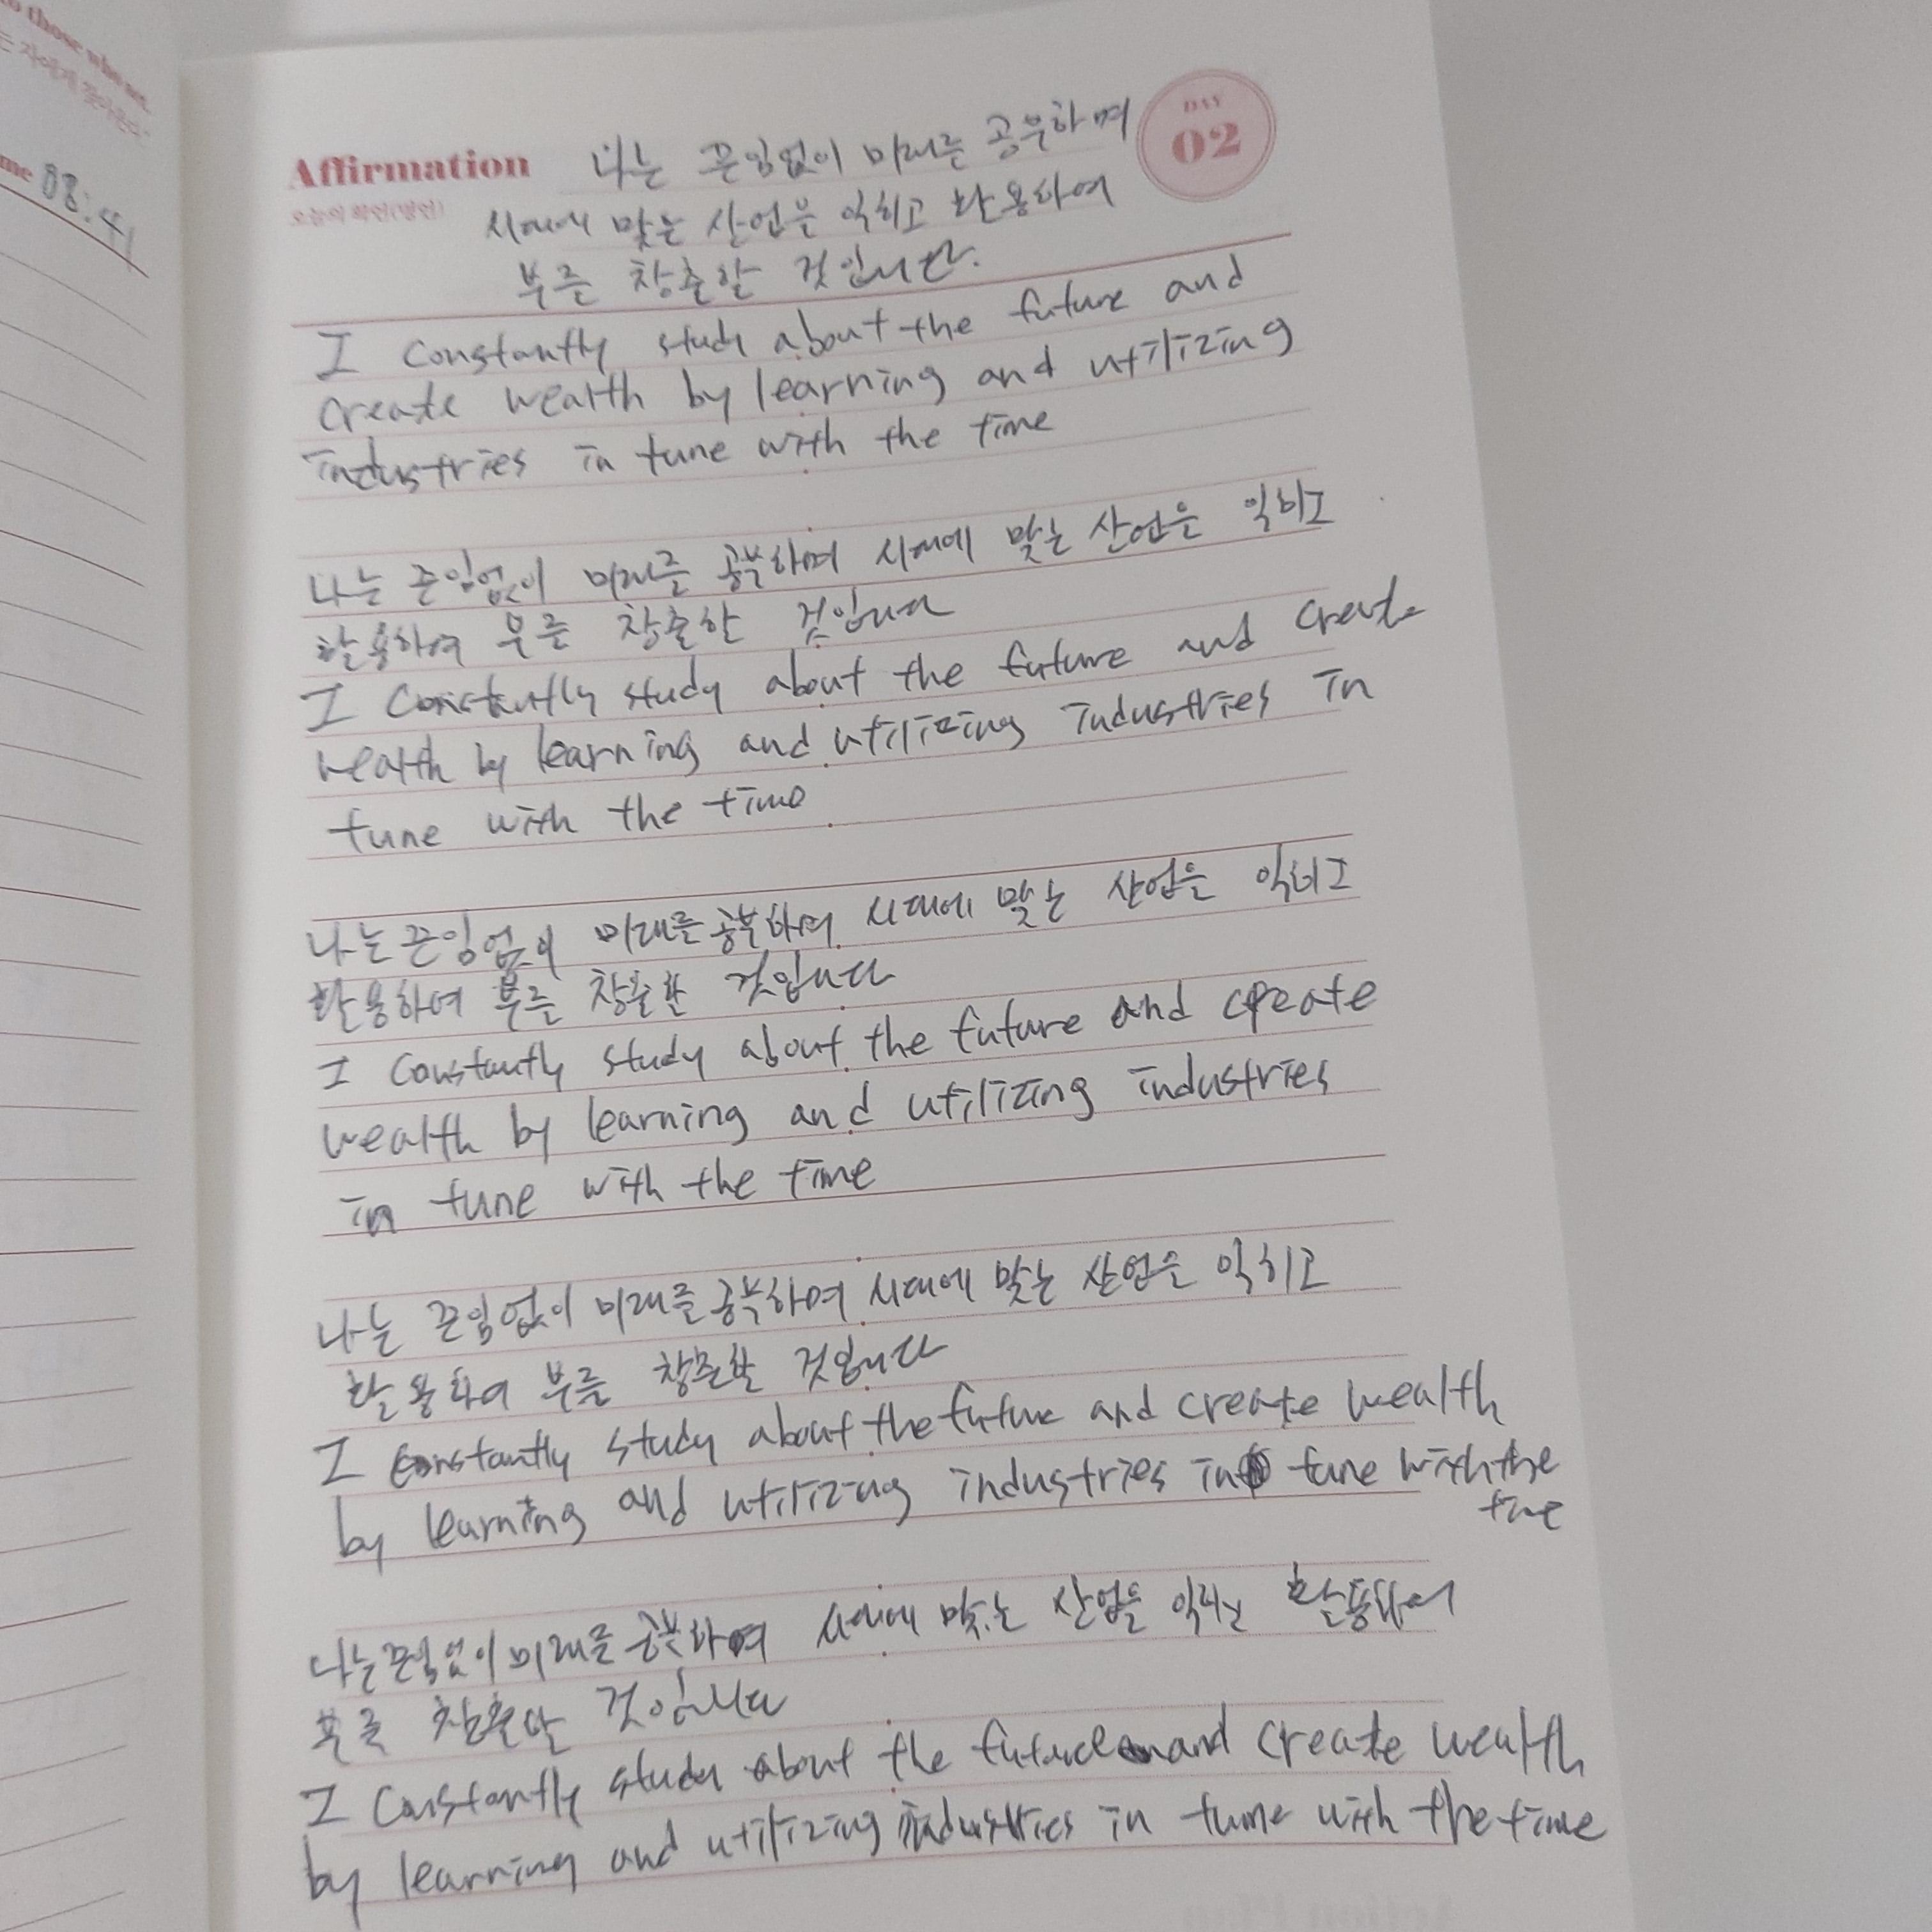 to those who act.
는 자에게 찾아온다"
me 08:41
DAY
02
Affirmation 나는 끈임없이 미래를 공부하며
오늘의 확언(명언) 시대에 맞는 산업을 익히고 활용하여
부를 창출할 것입니다.
I constantly study about the future and
create wealth by learning and utilizing
industries in tune with the time
나는 끈임없이 미래를 공부하며 시대에 맞는 산업을 익히고
활용하여 부를 창출할 것입니다
I constantly study about the future and create
wealth by learning and utilizing industries in
tune with the time
나는 끈임없이 미래를 공부하며 시대에 맞는 산업을 익히고
활용하여 부를 창출할 것입니다
I constantly study about the future and create
wealth by learning and utilizing industries
in tune with the time
나는 끈임없이 미래를 공부하며 시대에 맞는 산업을 익히고
활용하여 부를 창출할 것입니다
I constantly study about the future and create wealth
by learning and utilizing industries in tune with the
time
나는 끈임없이 미래를 공부하며 시대에 맞는 산업을 익히고 활용하여
부를 창출할 것입니다
I constantly study about the future and create wealth
by learning and utilizing industries in tune with the time